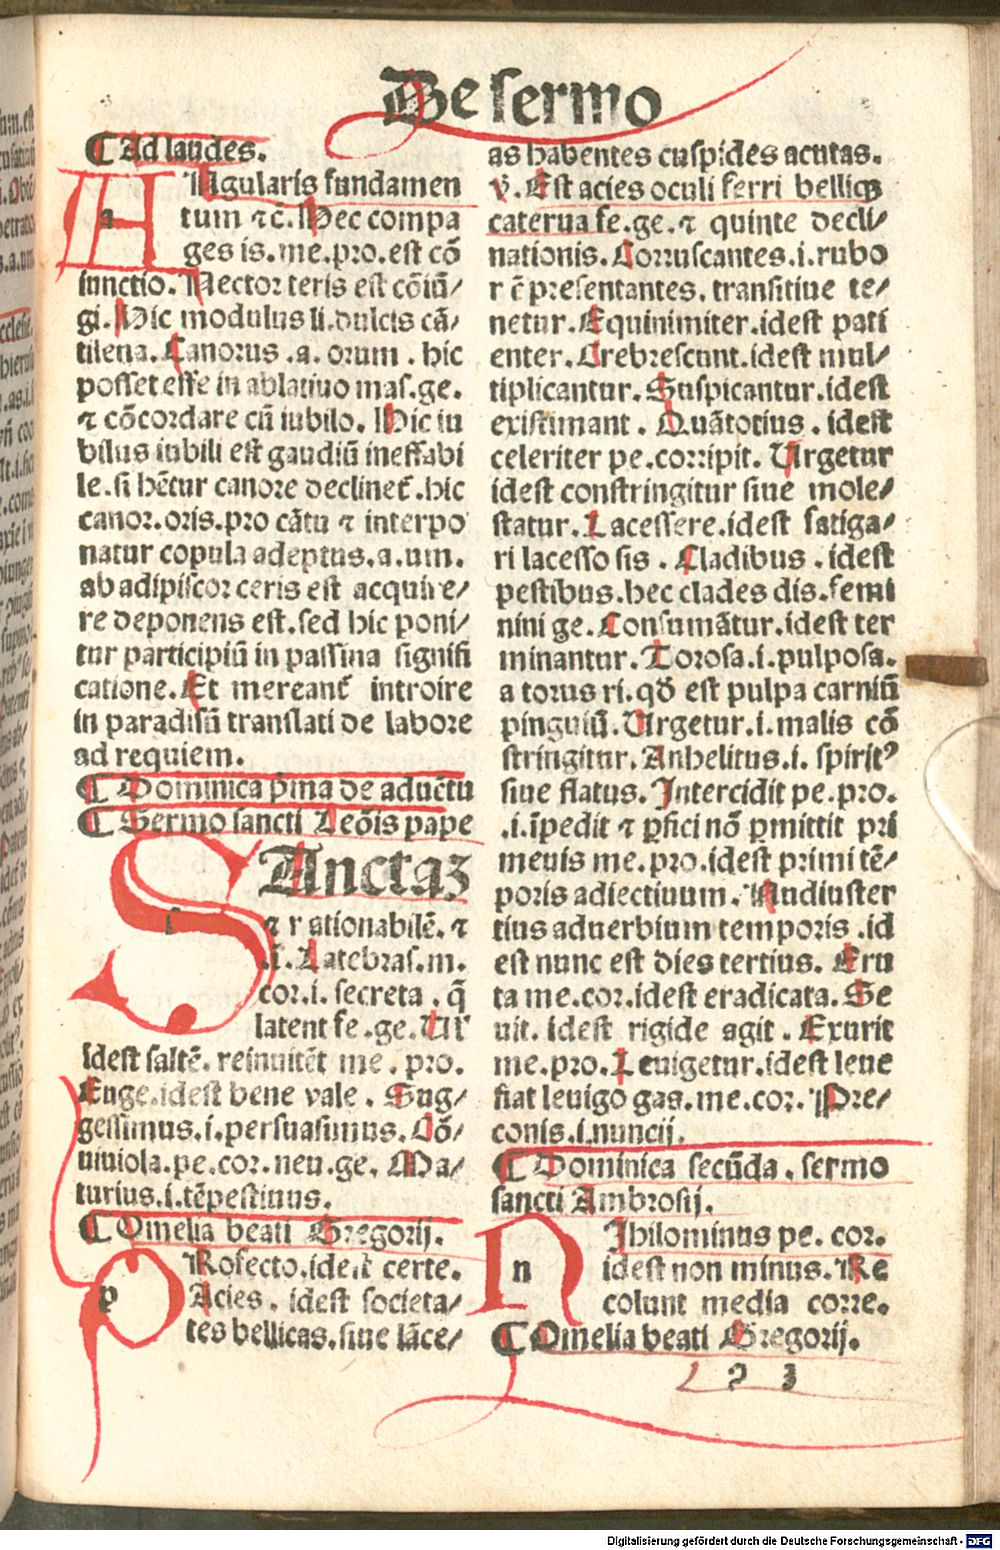 De sermo
¶ Ad laudes.
ANgularis fundamen
tum ⁊cē. Hec compa
ges is. me. pro. est cō
iunctio. Nector teris est cōiū/
gi. Hic modulus li. dulcis cā/
tilena. Canorus .a. orum . hic
posset esse in ablatiuo mas. ge.
⁊ cōcordare cū iubilo. Hic iu
bilus iubili est gaudiū ineffabi
le. si hētur canore declinet᷑. hic
canor. oris. pro cātu ⁊ interpo
natur copula adeptus. a. um.
ab adipiscor ceris est acquire/
re deponens est. sed hic poni/
tur participiū in passiua signifi
catione. Et mereant᷑ introire
in paradisū translati de labore
ad requiem.
¶ Dominica p̄ma de aduētu
¶ Sermo sancti Leōis pape
SAnctaꝫ
⁊ rationabilē. ⁊
.i. Latebras. m.
cor. i. secreta . q̄
latent fe. ge. Ul'
idest saltē. reinuitēt me. pro.
Euge. idest bene vale . Sug/
gessimus. i. persuasimus. Cō/
uiuiola. pe. cor. neu. ge. Ma/
turius. i. tēpestiuus.
¶ Omelia beati Gregorij.
pRofecto. idest certe.
Acies . idest societa/
tes bellicas. siue lāce/
as habentes cuspides acutas.
v̄. Est acies oculi ferri bellicꝫ
caterua fe. ge. ⁊ quinte decli/
nationis. Corruscantes. i. rubo
rē presentantes. transitiue te/
netur. Equinimiter. idest pati
enter. Crebrescunt. idest mul/
tiplicantur. Suspicantur. idest
existimant . Quātotius . idest
celeriter pe. corripit. Urgetur
idest constringitur siue mole/
statur. Lacessere. idest fatiga/
ri lacesso sis . Cladibus . idest
pestibus. hec clades dis. femi
nini ge. Consumātur. idest ter
minantur. Torosa. i. pulposa.
a torus ri. qd̄ est pulpa carniū
pinguiū. Urgetur. i. malis cō
stringitur. Anhelitus. i. spiritꝰ
siue flatus. Intercidit pe. pro.
.i. īpedit ⁊ ꝑfici nō ꝑmittit pri
meuis me. pro. idest primi tē/
poris adiectiuum. Nudiuster
tius aduerbium temporis . id
est nunc est dies tertius. Eru
ta me. cor. idest eradicata. Se
uit. idest rigide agit . Exurit
me. pro. Leuigetur. idest leue
fiat leuigo gas. me. cor. Pre/
conis. i. nuncij.
¶ Dominica secūda . sermo
sancti Ambrosij.
nIhilominus pe. cor.
idest non minus. Re
colunt media corre.
¶ Omelia beati Gregorij.
2 3
Digitalisierung gefördert durch die Deutsche Forschungsgemeinschaft - DFG